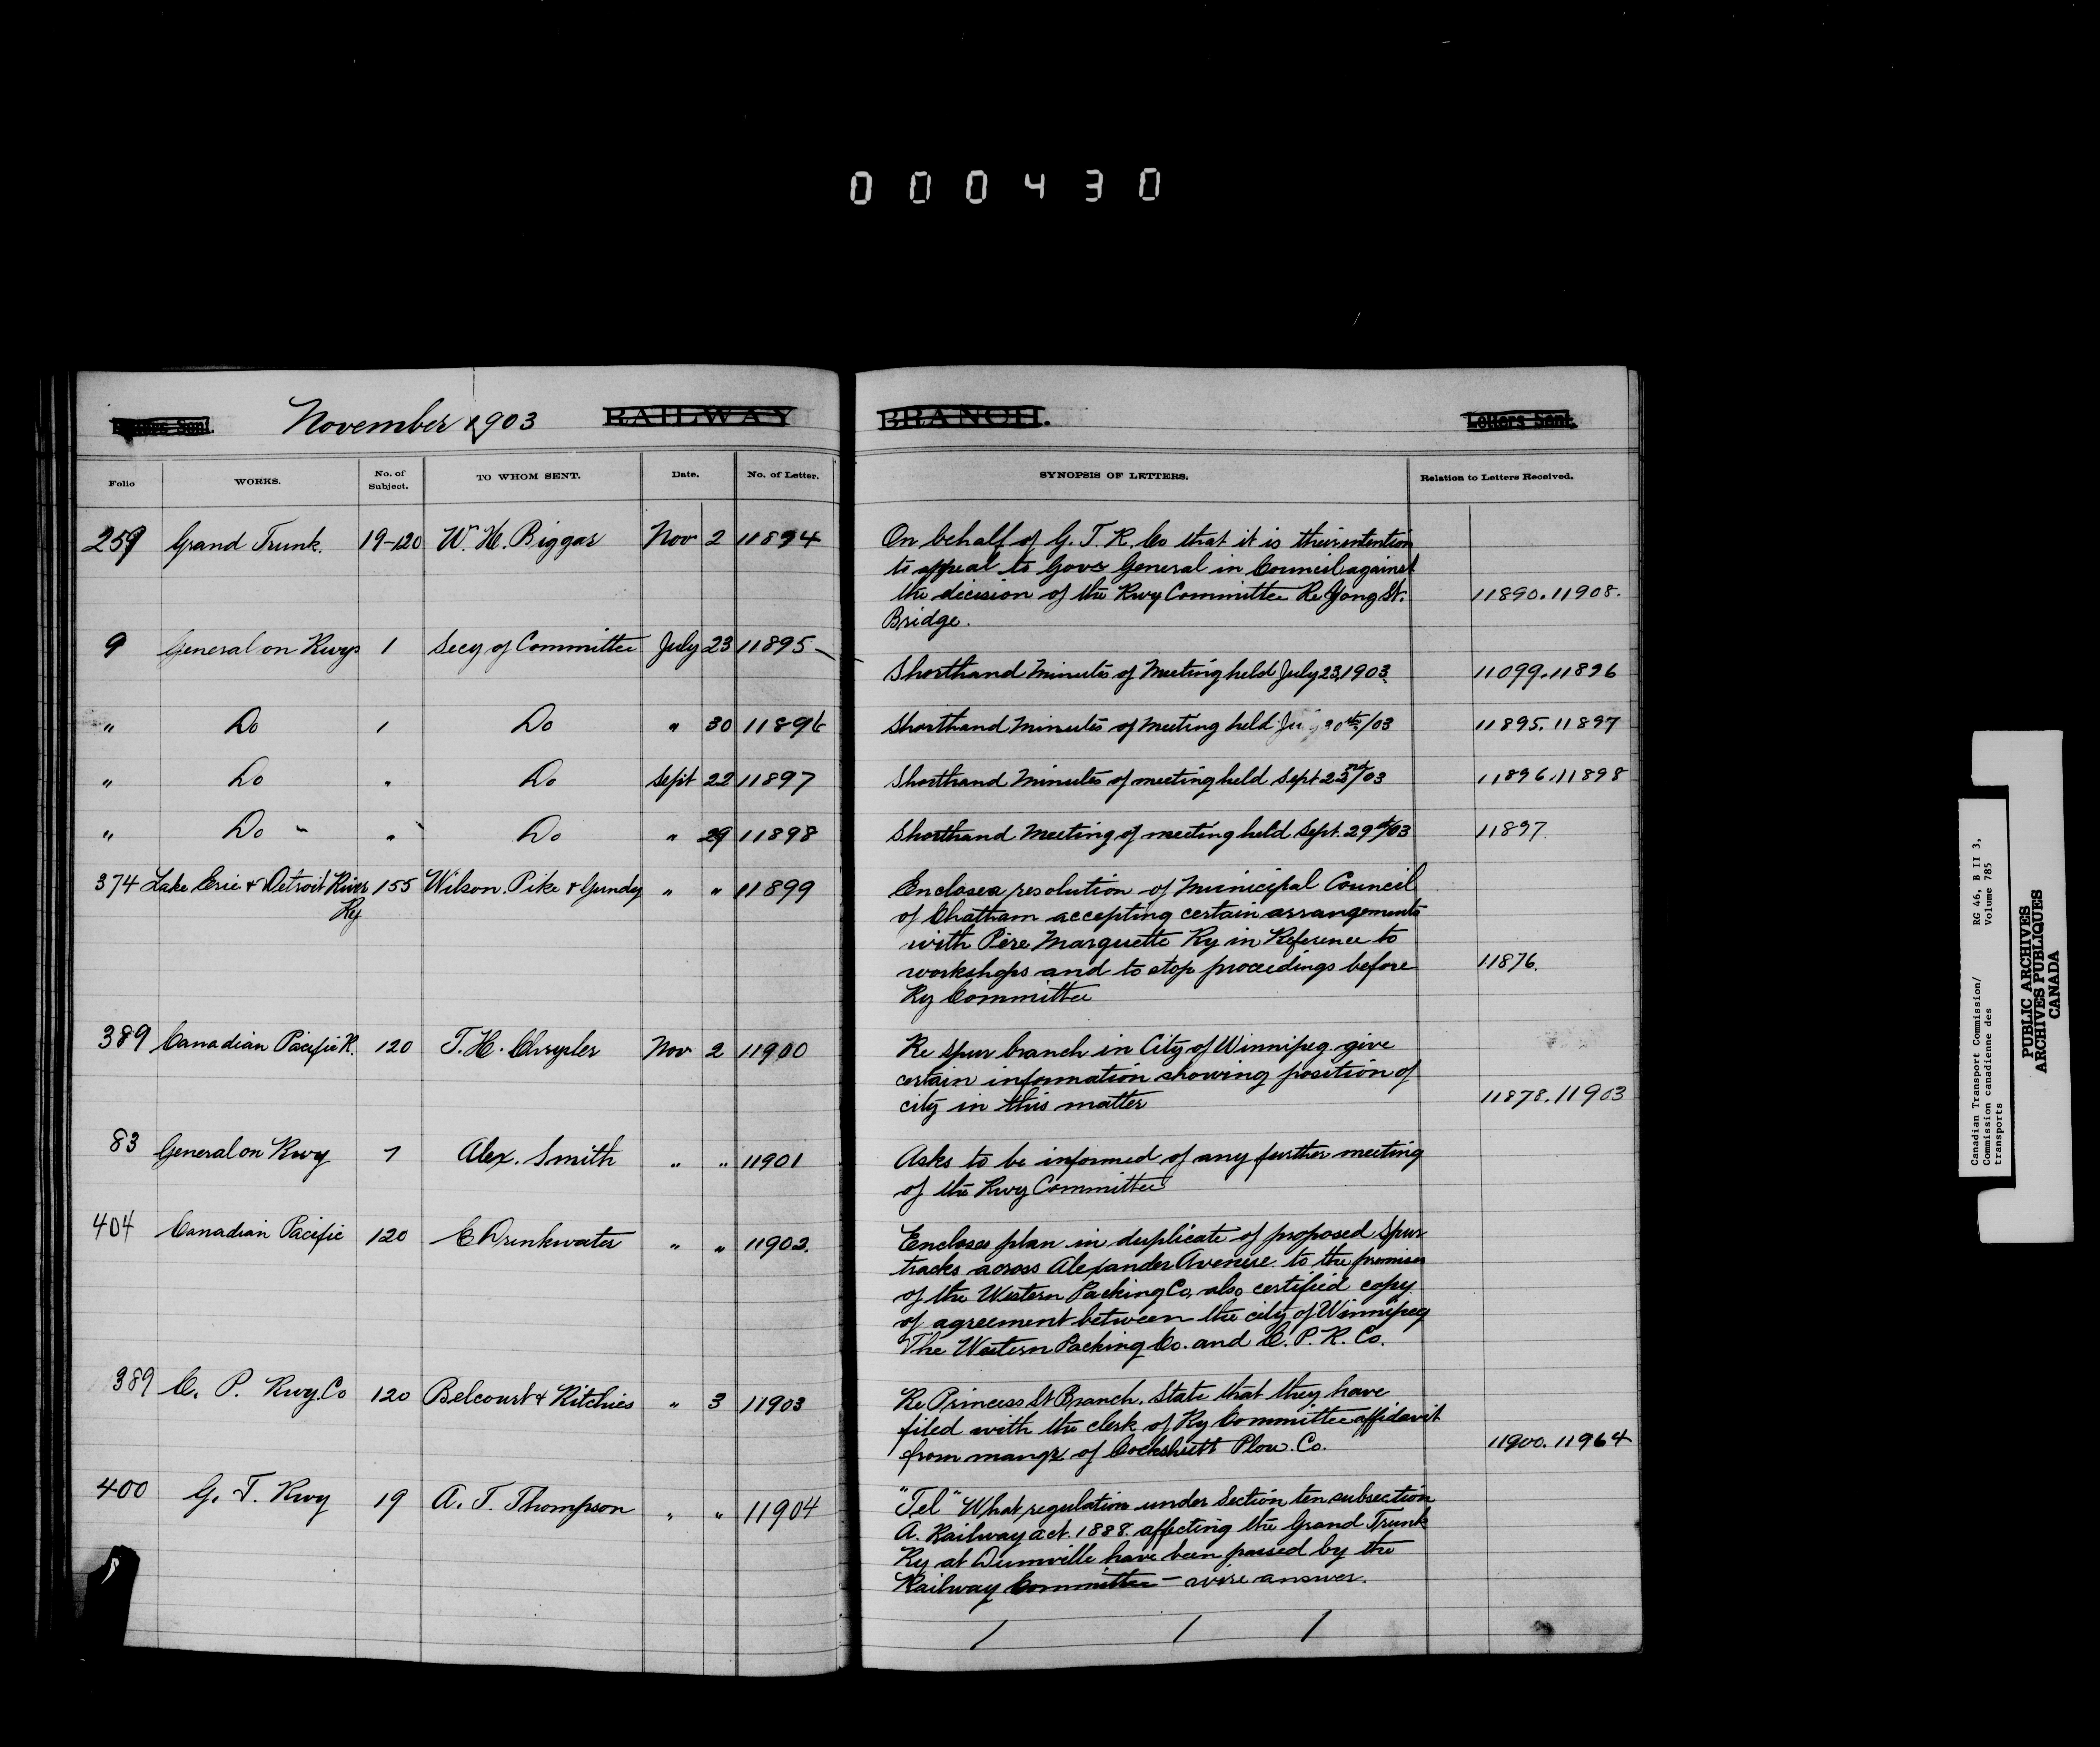 000430
Letters Sent. November 1903 RAILWAY BRANCH. Letters Sent.
Folio WORKS. No. of Subject. TO WHOM SENT. Date. No. of Letter. SYNOPSIS OF LETTERS. Relation to Letters Received.
259 Grand Trunk. 19-120 W. H. Biggar Nov 2 11894 On behalf of G. T. R. Co that it is their intention
to appeal to Govr General in Council against
the decision of the Rwy Committee Re Yong St. 11890. 11908.
Bridge.
9 General on Rwys 1 Secy of Committee July 23 11895
Shorthand Minutes of Meeting held July 23, 1903. 11099. 11896
" Do 1 Do " 30 11896 Shorthand Minutes of Meeting held 30th/03 11895. 11897
" Do " Do Sept 22 11897 Shorthand Minutes of meeting held Sept 23rd/03 11896. 11898
" Do " Do " 29 11898 Shorthand Meeting of meeting held Sept. 29th/03 11897.
374 Lake Erie & Detroit River 155 Wilson. Pike & Gundy " " 11899 Enclose a resolution of Municipal Council
Ry of Chatham accepting certain arrangements
with Père Marquette Ry in Reference to
workshops and to stop proceedings before 11876.
Ry Committee
389 Canadian Pacific R. 120 T. H. Chrysler Nov 2 11900 Re spur branch in City of Winnipeg give
certain information showing position of
city in this matter 11878. 11903
83 General on Rwy 7 Alex. Smith " " 11901 Asks to be informed of any further meeting
of the Rwy Committee
404 Canadian Pacific 120 E Drinkwater " " 11902. Encloses plan in duplicate of proposed spur
tracks across Alexander Avenue to the premises
of the Western Packing Co, also certified copy
of agreement between the city of Winnipeg
The Western Packing Co. and C. P. R. Co.
389 C. P. Rwy. Co 120 Belcourt & Ritchies " 3 11903 Re Princess St Branch. State that they have
filed with the clerk of Ry Committee affidavit
from mangr of Cockshutt Plow. Co. 11900. 11964
400 G. T. Rwy 19 A. T. Thompson " " 11904 "Tel" What regulation under Section ten subsection
A. Railway act. 1888. affecting the Grand Trunk
Ry at Dunnville have been passed by the
Railway Committee - wire answer.
Canadian Transport Commission/ RG 46, B II 3,
Commission canadienne des Volume 785
transports
PUBLIC ARCHIVES
ARCHIVES PUBLIQUES
CANADA